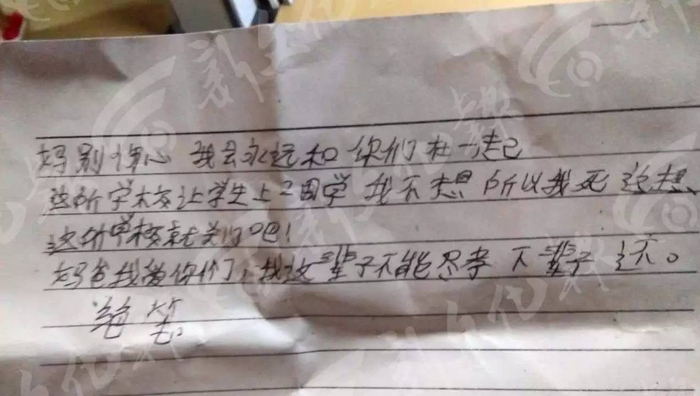 妈别伤心 我会永远和你们在一起
这所学校让学生上二周学 我不想 所以我死 这想
这所学校就关门吧！
妈爸我爱你们，我这辈子不能尽孝 下辈子 还。
绝笔。
新文化报